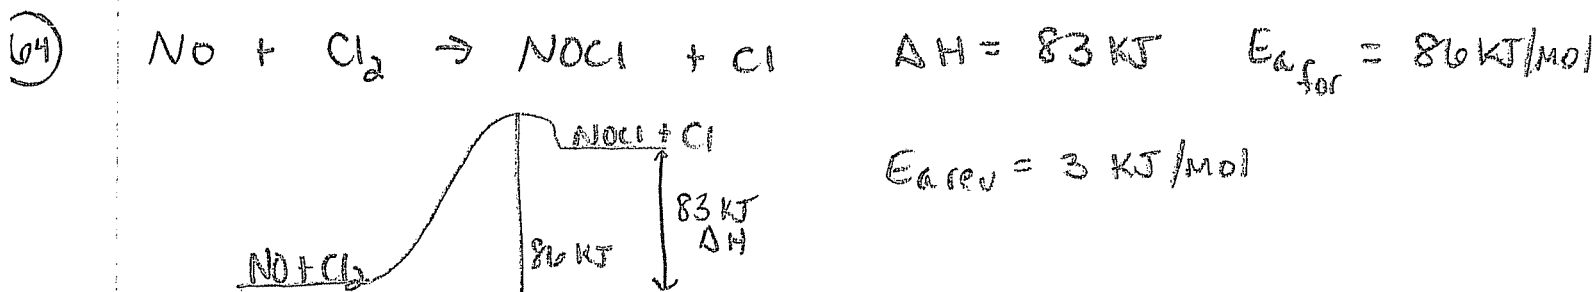 64 NO + Cl₂ → NOCl + Cl ΔH = 83 KJ Ea for = 86 KJ/mol
NOCl + Cl
Ea rev = 3 KJ/mol
83 KJ
ΔH
86 KJ
NO + Cl₂